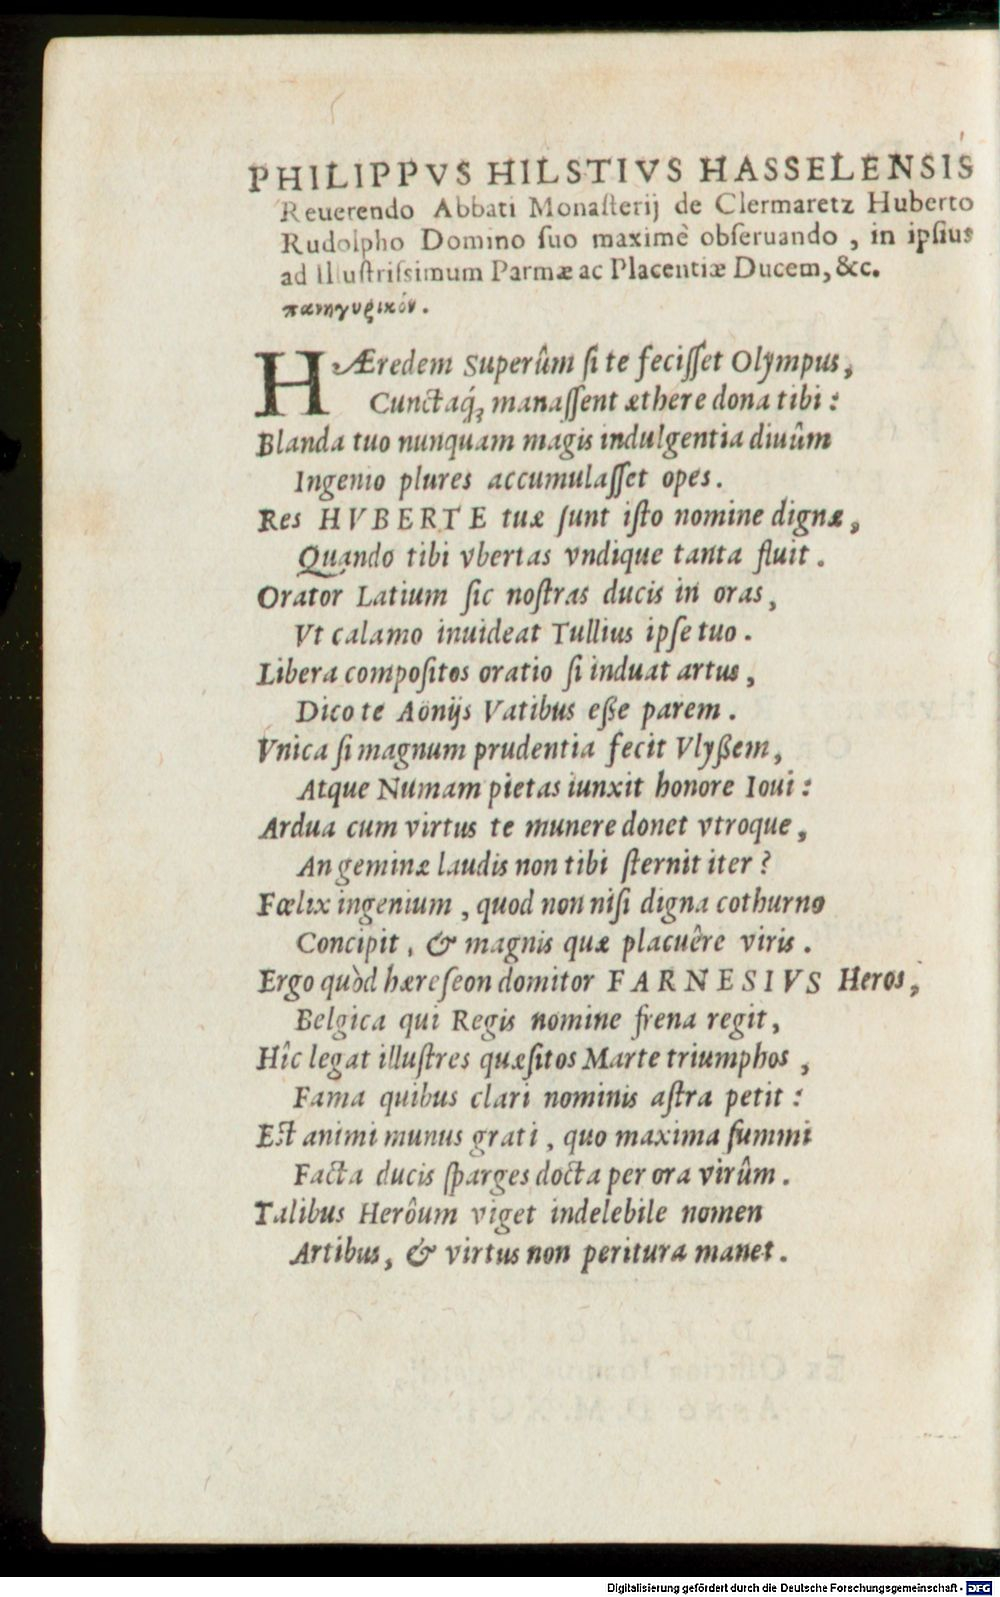 PHILIPPVS HILSTIVS HASSELENSIS
Reuerendo Abbati Monaſterij de Clermaretz Huberto
Rudolpho Domino ſuo maximè obſeruando , in ipſius
ad Illuſtriſsimum Parmæ ac Placentiæ Ducem, &c.
πανηγυρικόν.
HÆredem Superûm ſi te feciſſet Olympus,
Cunctaq́; manaſſent æthere dona tibi :
Blanda tuo nunquam magis indulgentia diuûm
Ingenio plures accumulaſſet opes.
Res HVBERTE tuæ ſunt iſto nomine dignæ,
Quando tibi vbertas vndique tanta fluit.
Orator Latium ſic noſtras ducis in oras,
Vt calamo inuideat Tullius ipſe tuo.
Libera compoſitos oratio ſi induat artus,
Dico te Aönijs Vatibus eße parem.
Vnica ſi magnum prudentia fecit Vlyßem,
Atque Numam pietas iunxit honore Ioui :
Ardua cum virtus te munere donet vtroque,
An geminæ laudis non tibi ſternit iter ?
Fœlix ingenium, quod non niſi digna cothurno
Concipit, & magnis quæ placuêre viris.
Ergo quòd hæreſeon domitor FARNESIVS Heros,
Belgica qui Regis nomine frena regit,
Hîc legat illuſtres quæſitos Marte triumphos,
Fama quibus clari nominis aſtra petit :
Eſt animi munus grati, quo maxima ſummi
Facta ducis ſparges docta per ora virûm.
Talibus Herôum viget indelebile nomen
Artibus, & virtus non peritura manet.
Digitalisierung gefördert durch die Deutsche Forschungsgemeinschaft - DFG